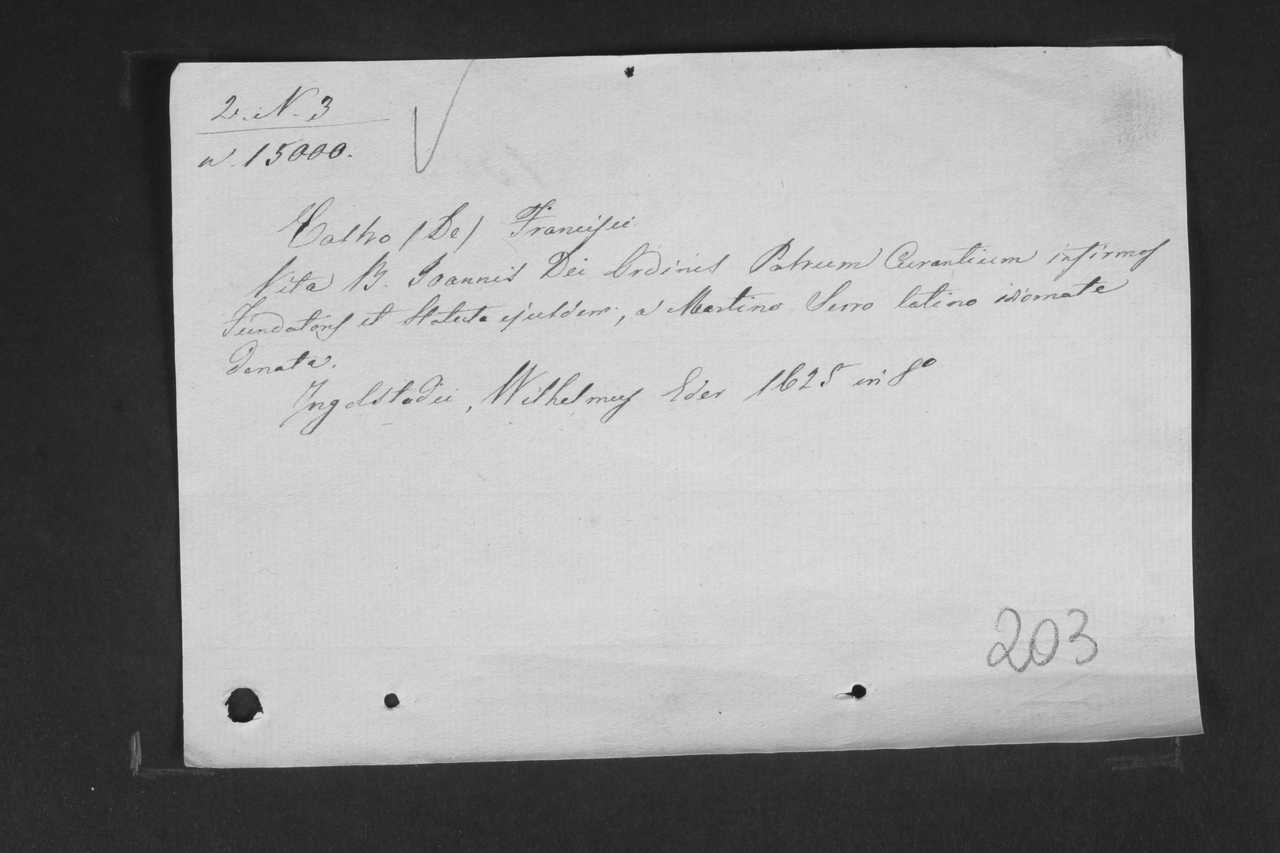 2. N. 3
a. 15000.
Castro (De) Francisci
Vita B. Joannis Dei Ordinis Patrum Curantium infirmos
Fundatoris et Statuta ejusdem, a Martino Serro latino idiomate
donata.
Ingolstadii, Wilhelmus Eder 1625 in 8º
203